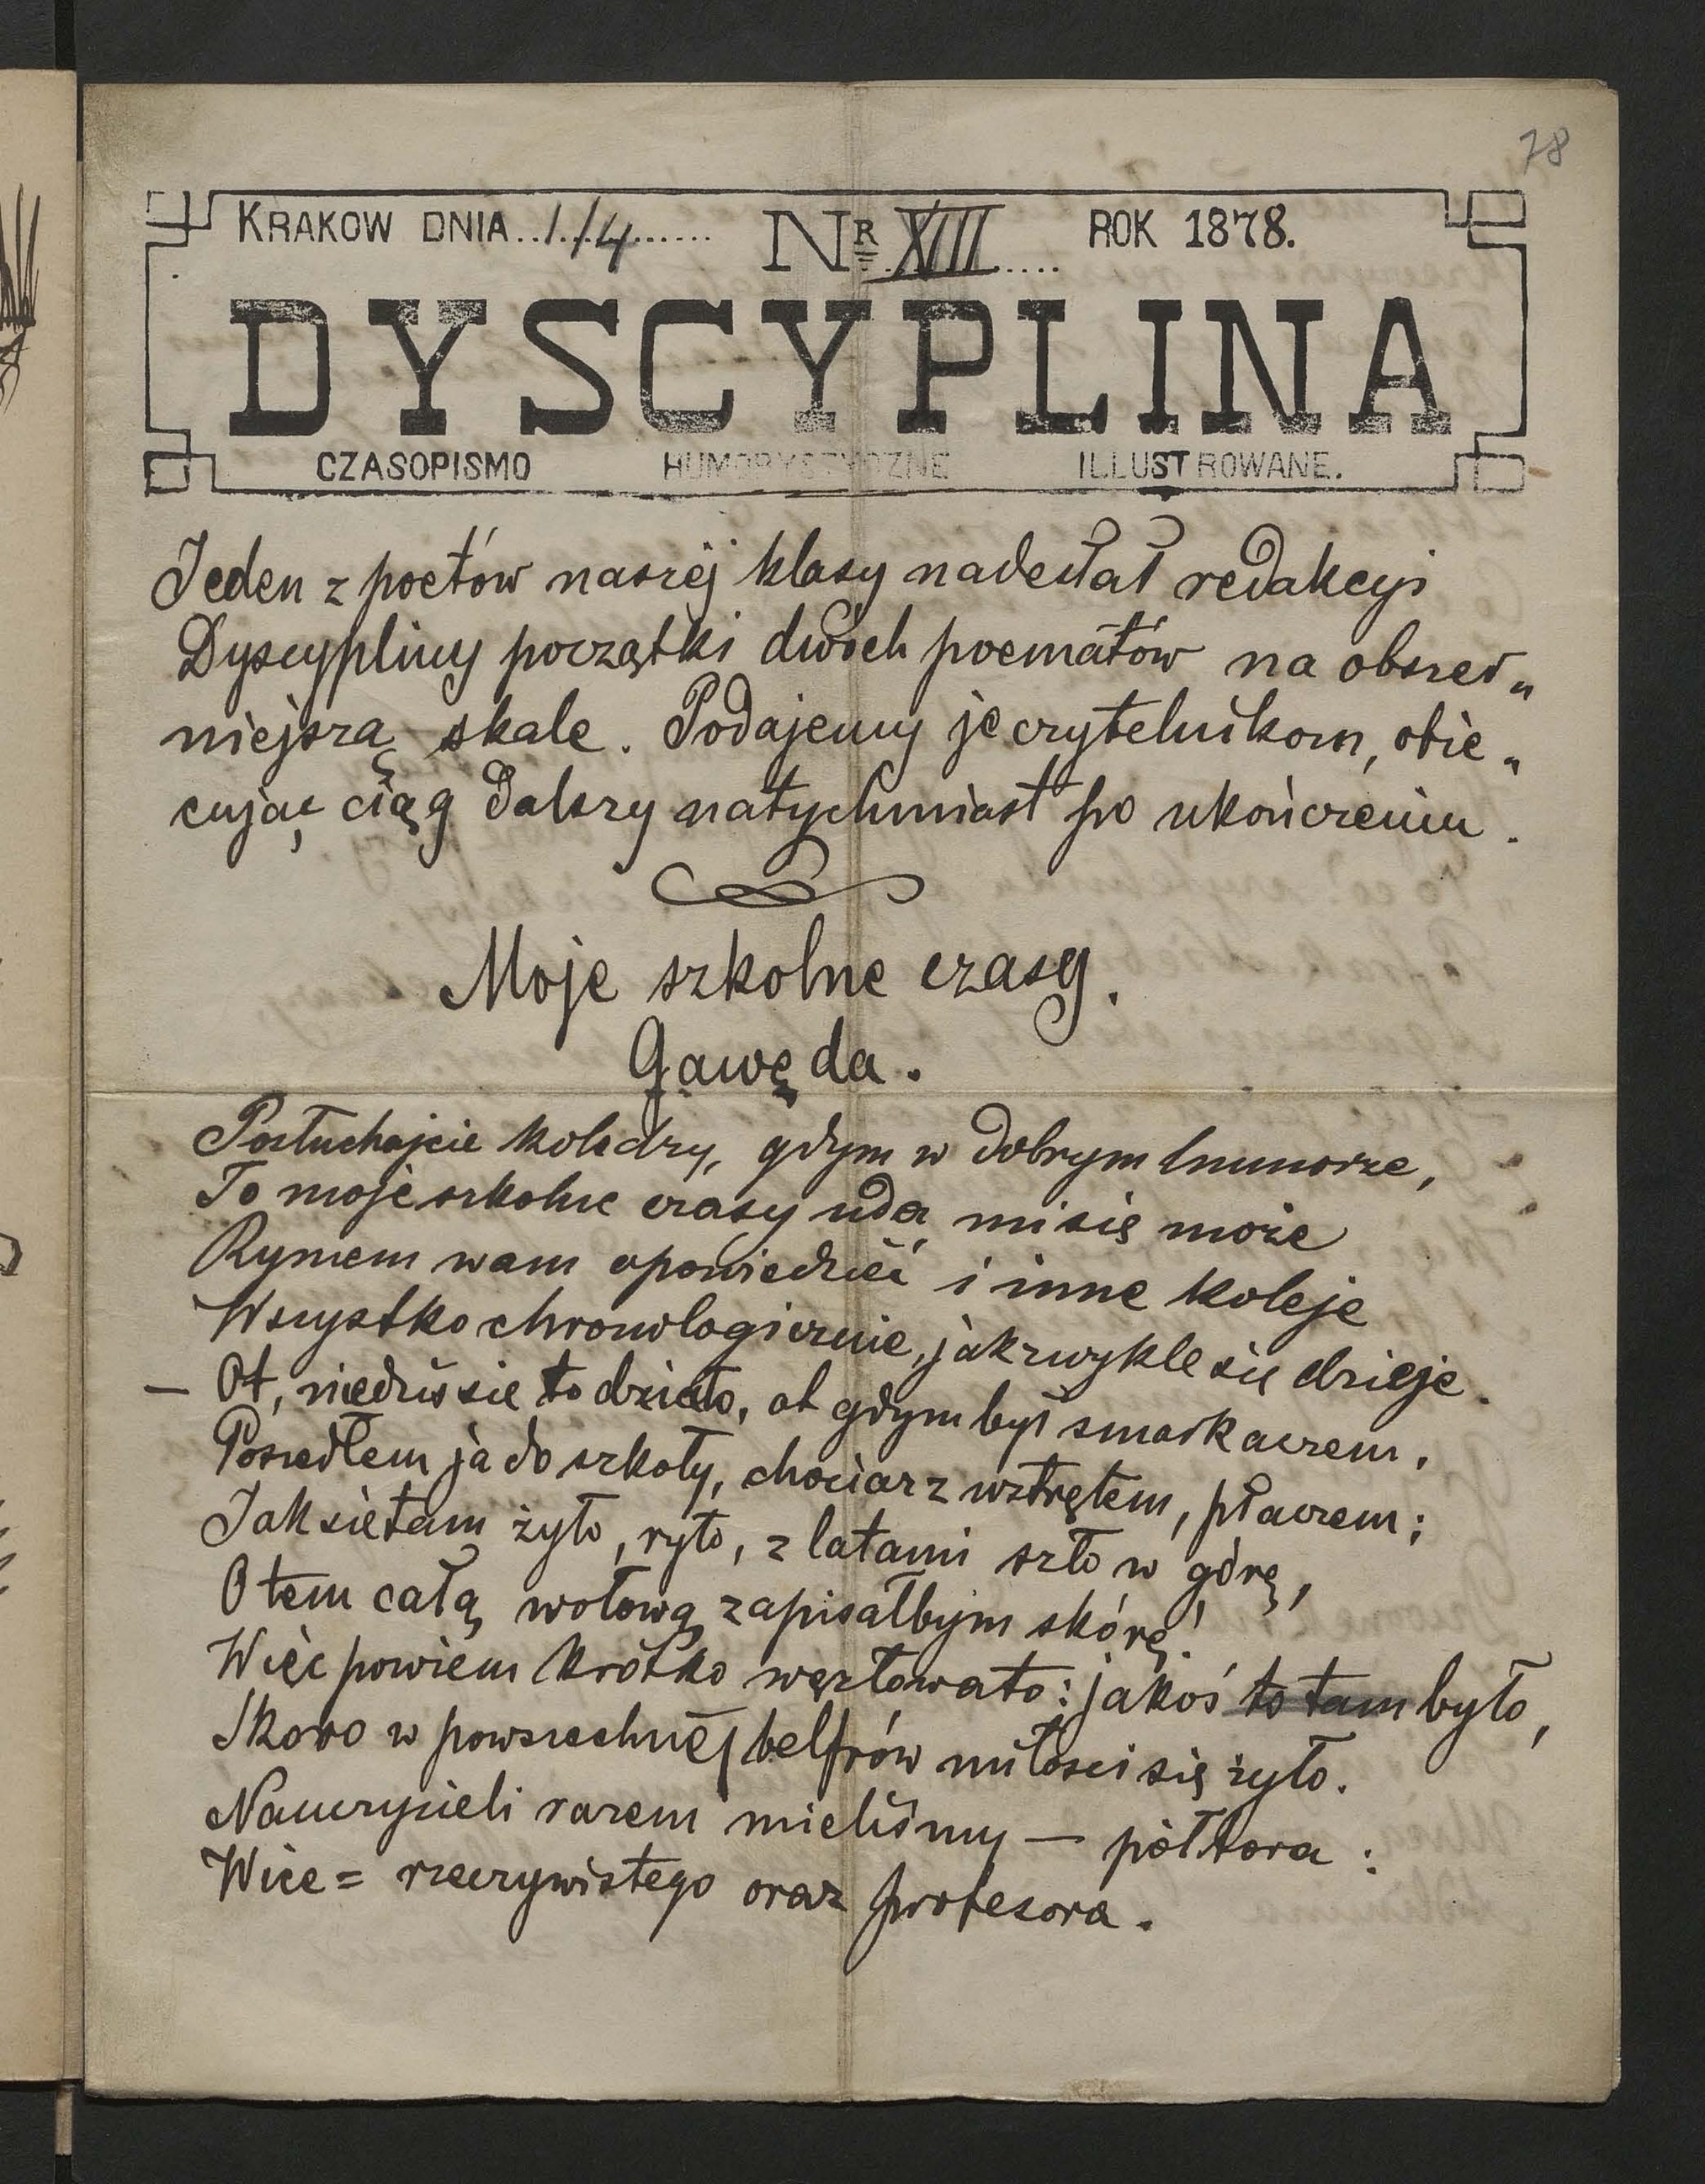 78
KRAKOW DNIA..1./4...... NR XIII..... ROK 1878.
DYSCYPLINA
CZASOPISMO HUMORYSTYCZNE ILLUSTROWANE.
Jeden z poetów naszéj klasy nadesłał redakcyi
Dyscypliny początki dwóch poematów na obszer„
niejszą skale. Podajemy je czytelnikom, obie„
cując ciąg dalszy natychmiast po ukończeniu.
Moje szkolne czasy.
Gawęda.
Posłuchajcie koledzy, gdym w dobrym humorze,
To moje szkolne czasy uda mi się może
Rymem wam opowiedzieć i inne koleje
Wszystko chronologicznie, jak zwykle się dzieje.
— Ot, niedziś sie to działo, ot gdym był smarkaczem,
Poszedłem ja do szkoły, chociarz wztrętem, płaczem;
Jak sie tam żyło, ryło, z latami szło w górę,
O tem całą wołową zapisałbym skórę!
Więc powiem krótko węzłowato: jakoś to tam było,
Skoro w powszechnéj belfrów miłości się żyło.
Nauczycieli razem mieliśmy — półtora:
Wice = rzeczywistego oraz profesora.